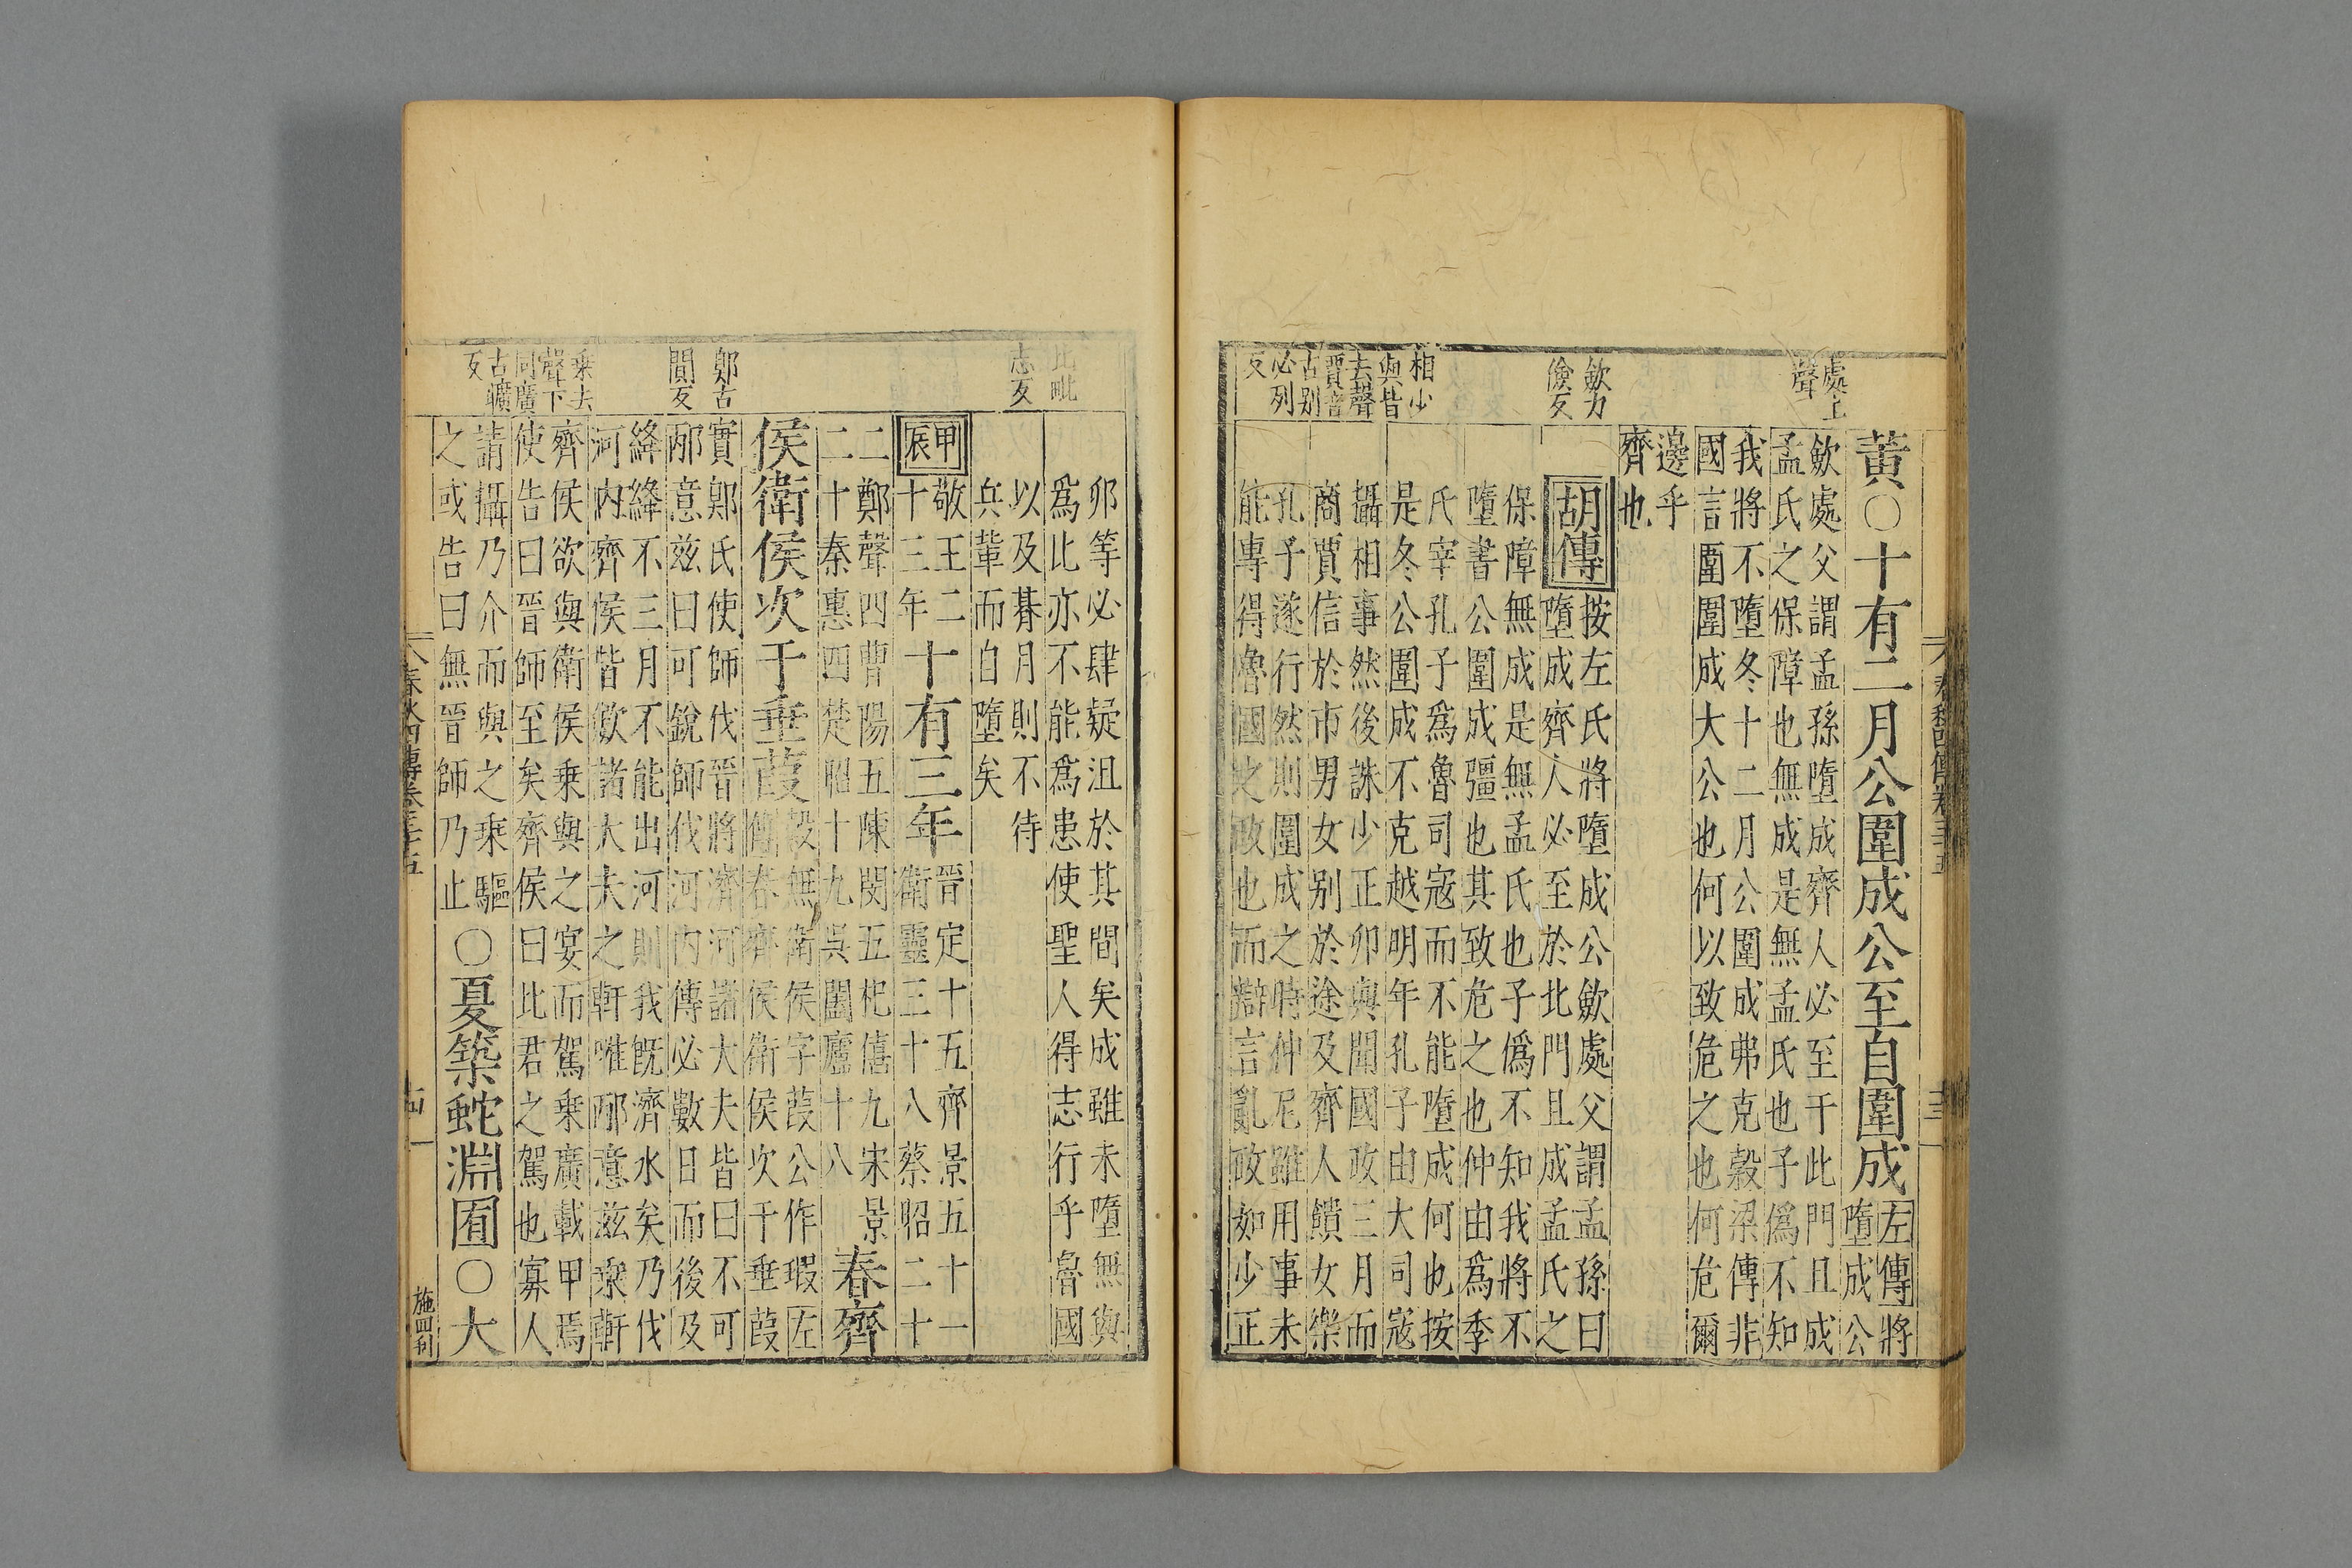 黃○十有二月公圍成公至自圍成
左傳將
墮成公
歛處父謂孟孫墮成齊人必至于此門且成
孟氏之保障也無成是無孟氏也子僞不知
我將不墮冬十二月公圍成弗克穀梁傳非
國言圍圍成大公也何以致危之也何危爾
邊乎
齊也
胡傳
按左氏將墮成公歛處父謂孟孫曰
墮成齊人必至於北門且成孟氏之
保障無成是無孟氏也子僞不知我將不
墮書公圍成彊也其致危之也仲由爲季
氏宰孔子爲魯司寇而不能墮成何也按
是冬公圍成不克越明年孔子由大司寇
攝相事然後誅少正卯與聞國政三月而
商賈信於市男女別於途及齊人饋女樂
孔子遂行然則圍成之時仲尼雖用事未
能專得魯國之政也而辯言亂政如少正
處上
聲
歛力
儉反
相少
與皆
去聲
賈音
古別
必列
反
春秋四傳卷三十五
卯等必肆疑沮於其間矣成雖未墮無與
爲比亦不能爲患使聖人得志行乎魯國
以及朞月則不待
兵革而自墮矣
甲辰
敬王二
十三年
十有三年
晉定十五齊景五十一
衛靈三十八蔡昭二十
二鄭聲四曹陽五陳閔五杞僖九宋景
二十秦惠四楚昭十九吳闔廬十八
春齊
侯衛侯次于垂葭
穀無衛侯字葭公作瑕左
傳春齊侯衛侯次于垂葭
實郹氏使師伐晉將濟河諸大夫皆曰不可
邴意茲曰可銳師伐河內傳必數日而後及
絳絳不三月不能出河則我既濟水矣乃伐
河內齊侯皆歛諸大夫之軒唯邴意茲乘軒
齊侯欲與衛侯乘與之宴而駕乘廣載甲焉
使告曰晉師至矣齊侯曰比君之駕也寡人
請攝乃介而與之乘驅
之或告曰無晉師乃止
○夏築蛇淵囿○大
比毗
志反
郹古
闃反
乘去
聲下
同廣
古曠
反
春秋四傳卷三十五
施四刊